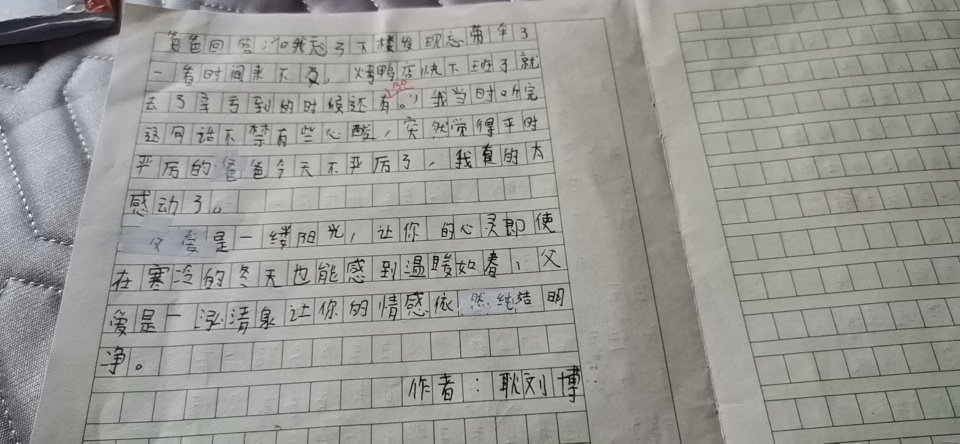 爸爸回答:"但我忘了下楼发现忘带伞了
一看时间来不及,烤鸭店快下班了就
去了幸亏到的时候还有。"我当时听完
这句话不禁有些心酸,突然觉得平时
严厉的爸爸今天不严厉了,我真的太
感动了。
父爱是一缕阳光,让你的心灵即使
在寒冷的冬天也能感到温暖如春,父
爱是一泓清泉让你的情感依然纯洁明
净。
作者:耿刘博